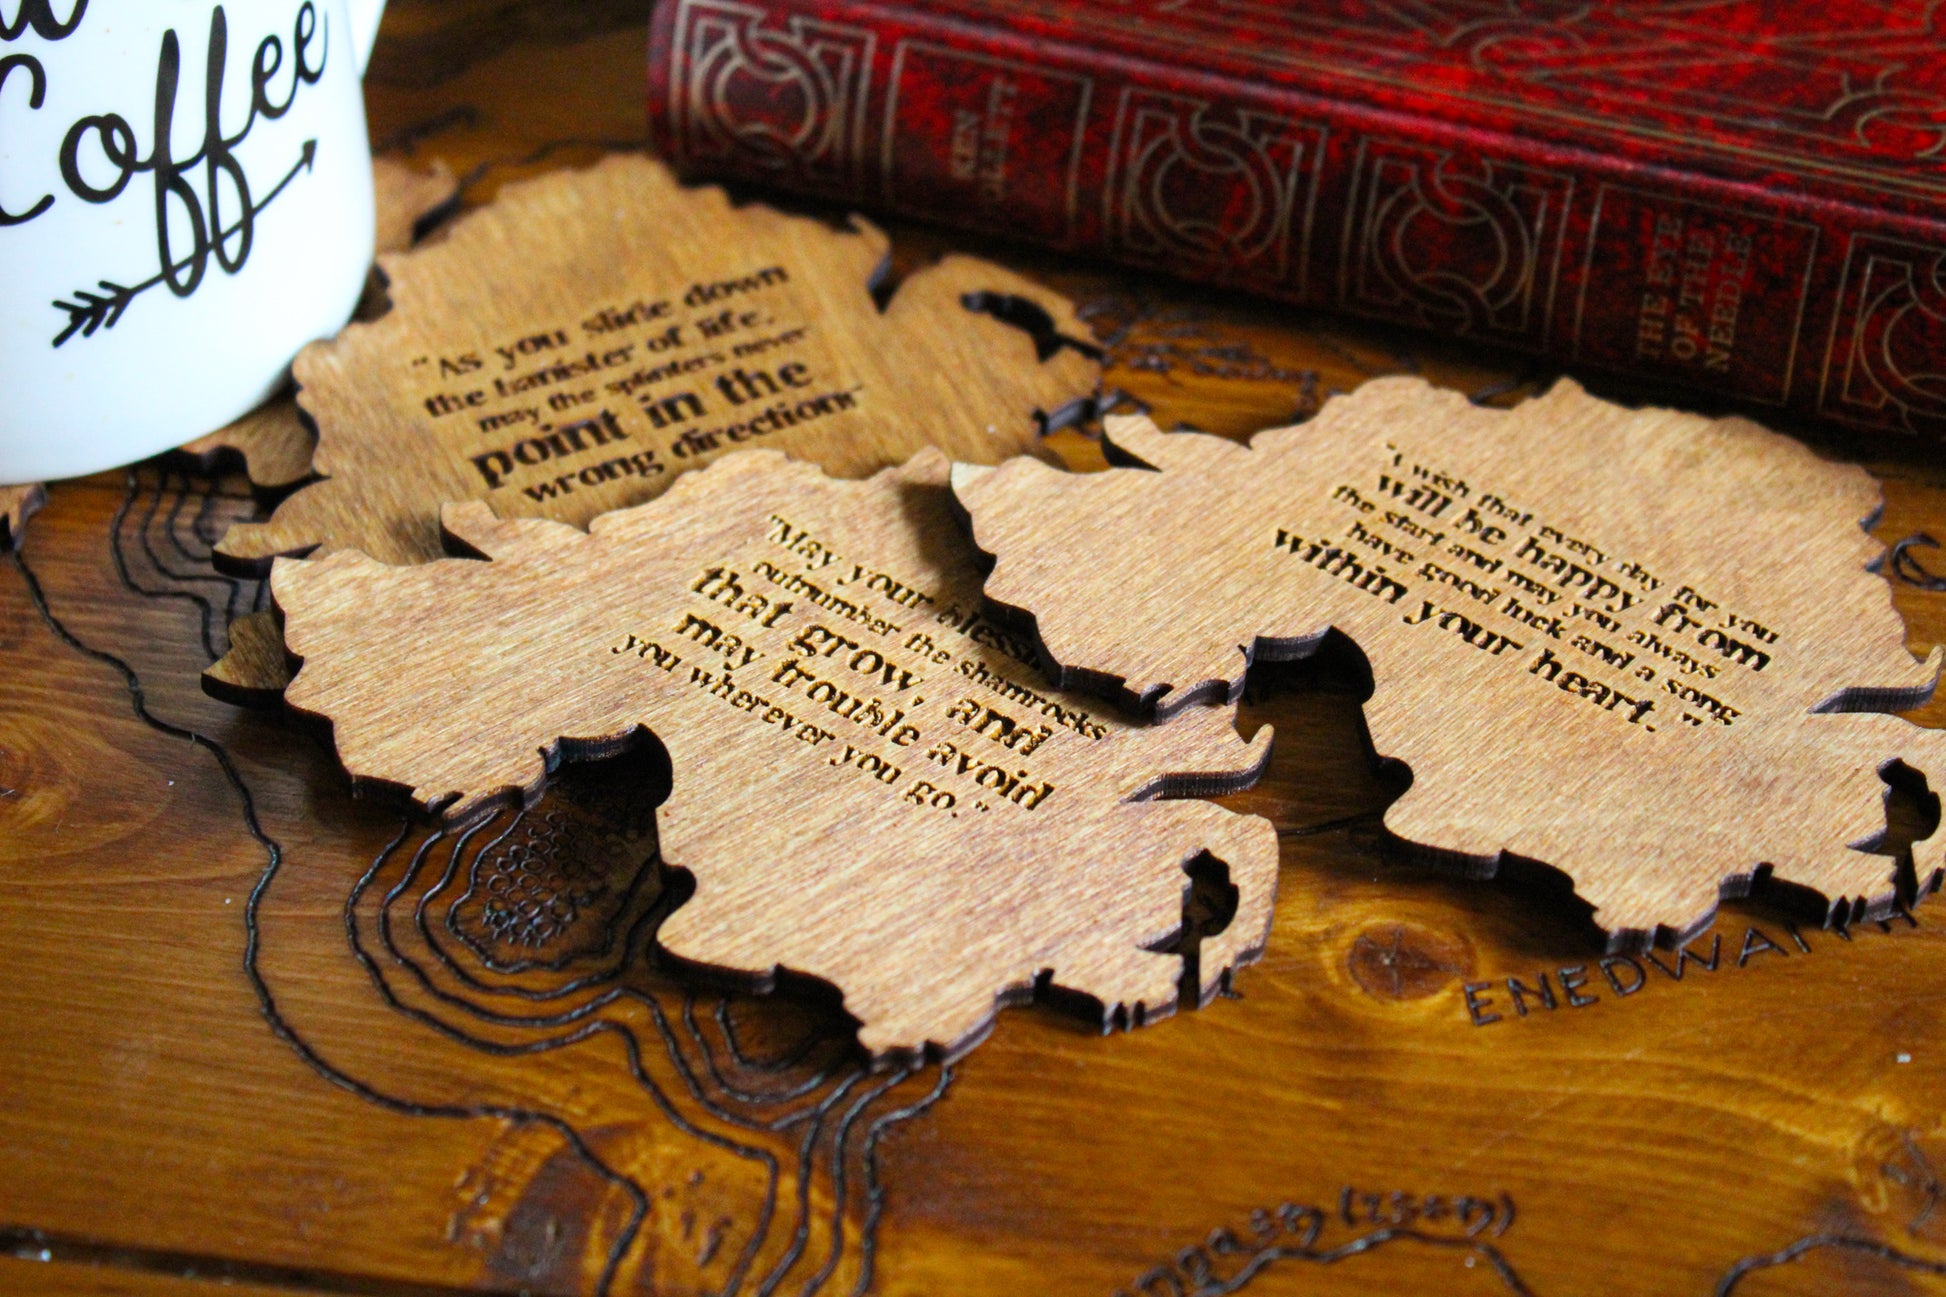 Coffee
KEN
FOLLETT
THE EYE
OF THE
NEEDLE
"As you slide down
the banister of life,
may the splinters never
point in the
wrong direction"
"May your blessin
outnumber the shamrocks
that grow, and
may trouble avoid
you wherever you go."
"I wish that every day for you
will be happy from
the start and may you always
have good luck and a song
within your heart."
ENEDWAITH
(ISEN)